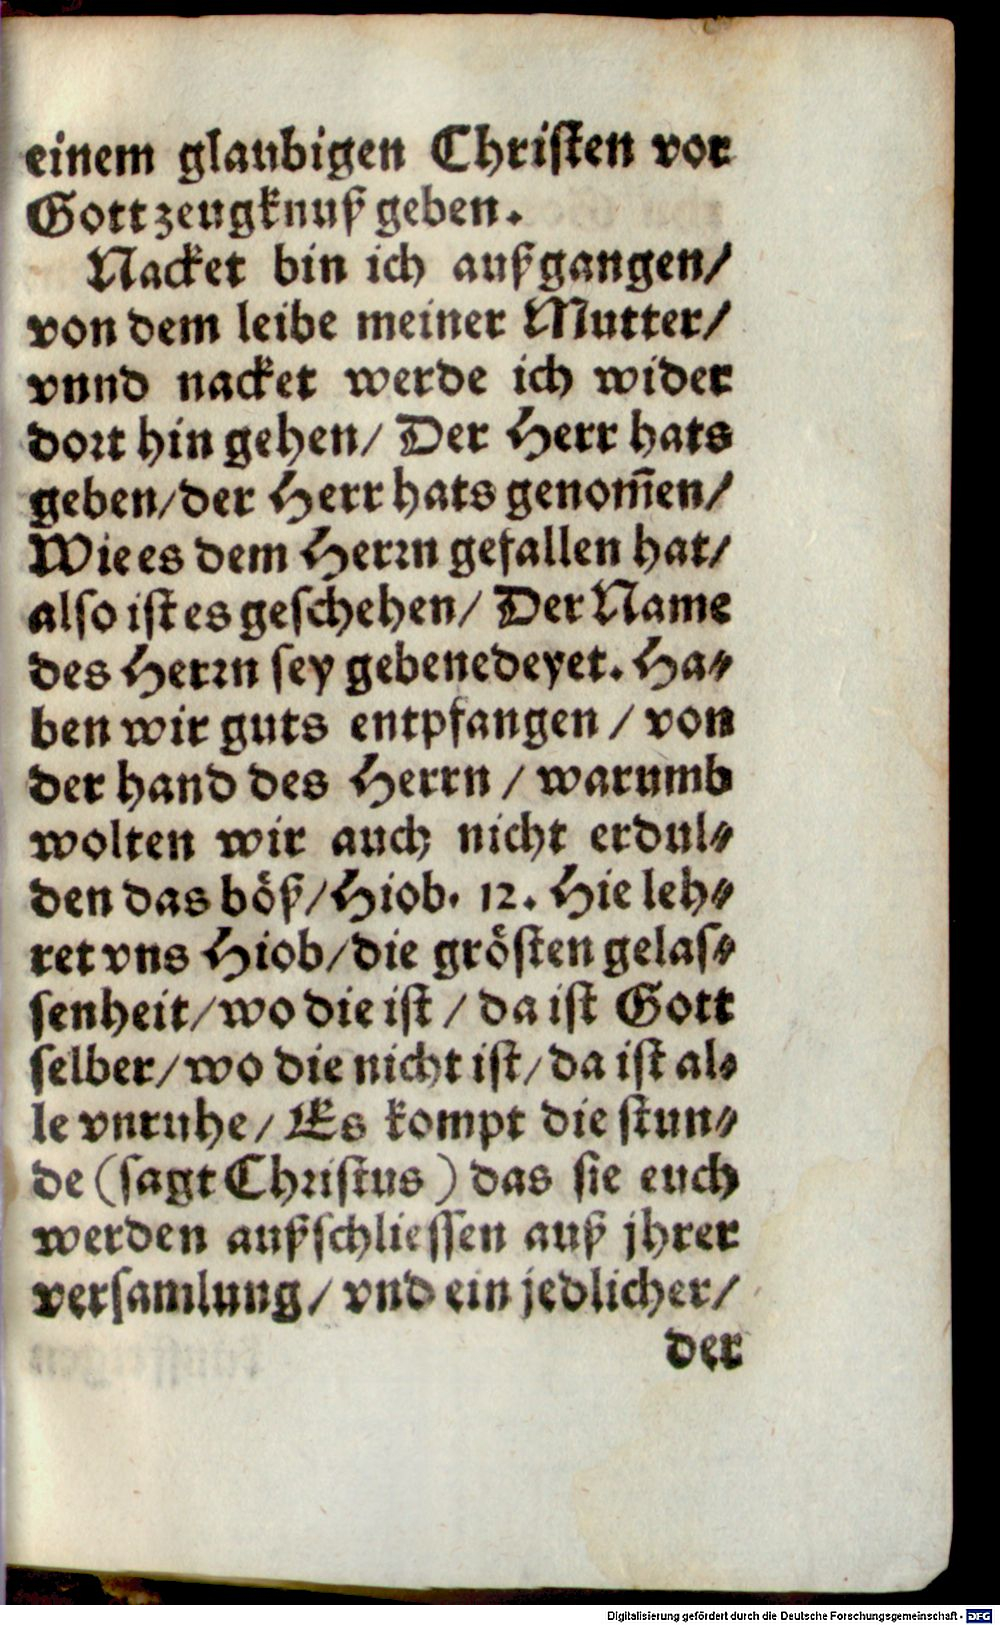 einem glaubigen Christen vor
Gott zeugknuß geben.
Nacket bin ich außgangen/
von dem leibe meiner Mutter/
vnnd nacket werde ich wider
dort hin gehen/ Der Herr hats
geben/der Herr hats genom̃en/
Wie es dem Herrn gefallen hat/
also ist es geschehen/ Der Name
des Herrn sey gebenedeyet. Ha-
ben wir guts entpfangen / von
der hand des Herrn / warumb
wolten wir auch nicht erdul-
den das böß/Hiob. 12. Hie leh-
ret vns Hiob/die grösten gelas-
senheit/wo die ist / da ist Gott
selber/wo die nicht ist/da ist al-
le vnruhe/ Es kompt die stun-
de (sagt Christus) das sie euch
werden außschliessen auß jhrer
versamlung/ vnd ein jedlicher/
der
Digitalisierung gefördert durch die Deutsche Forschungsgemeinschaft - DFG